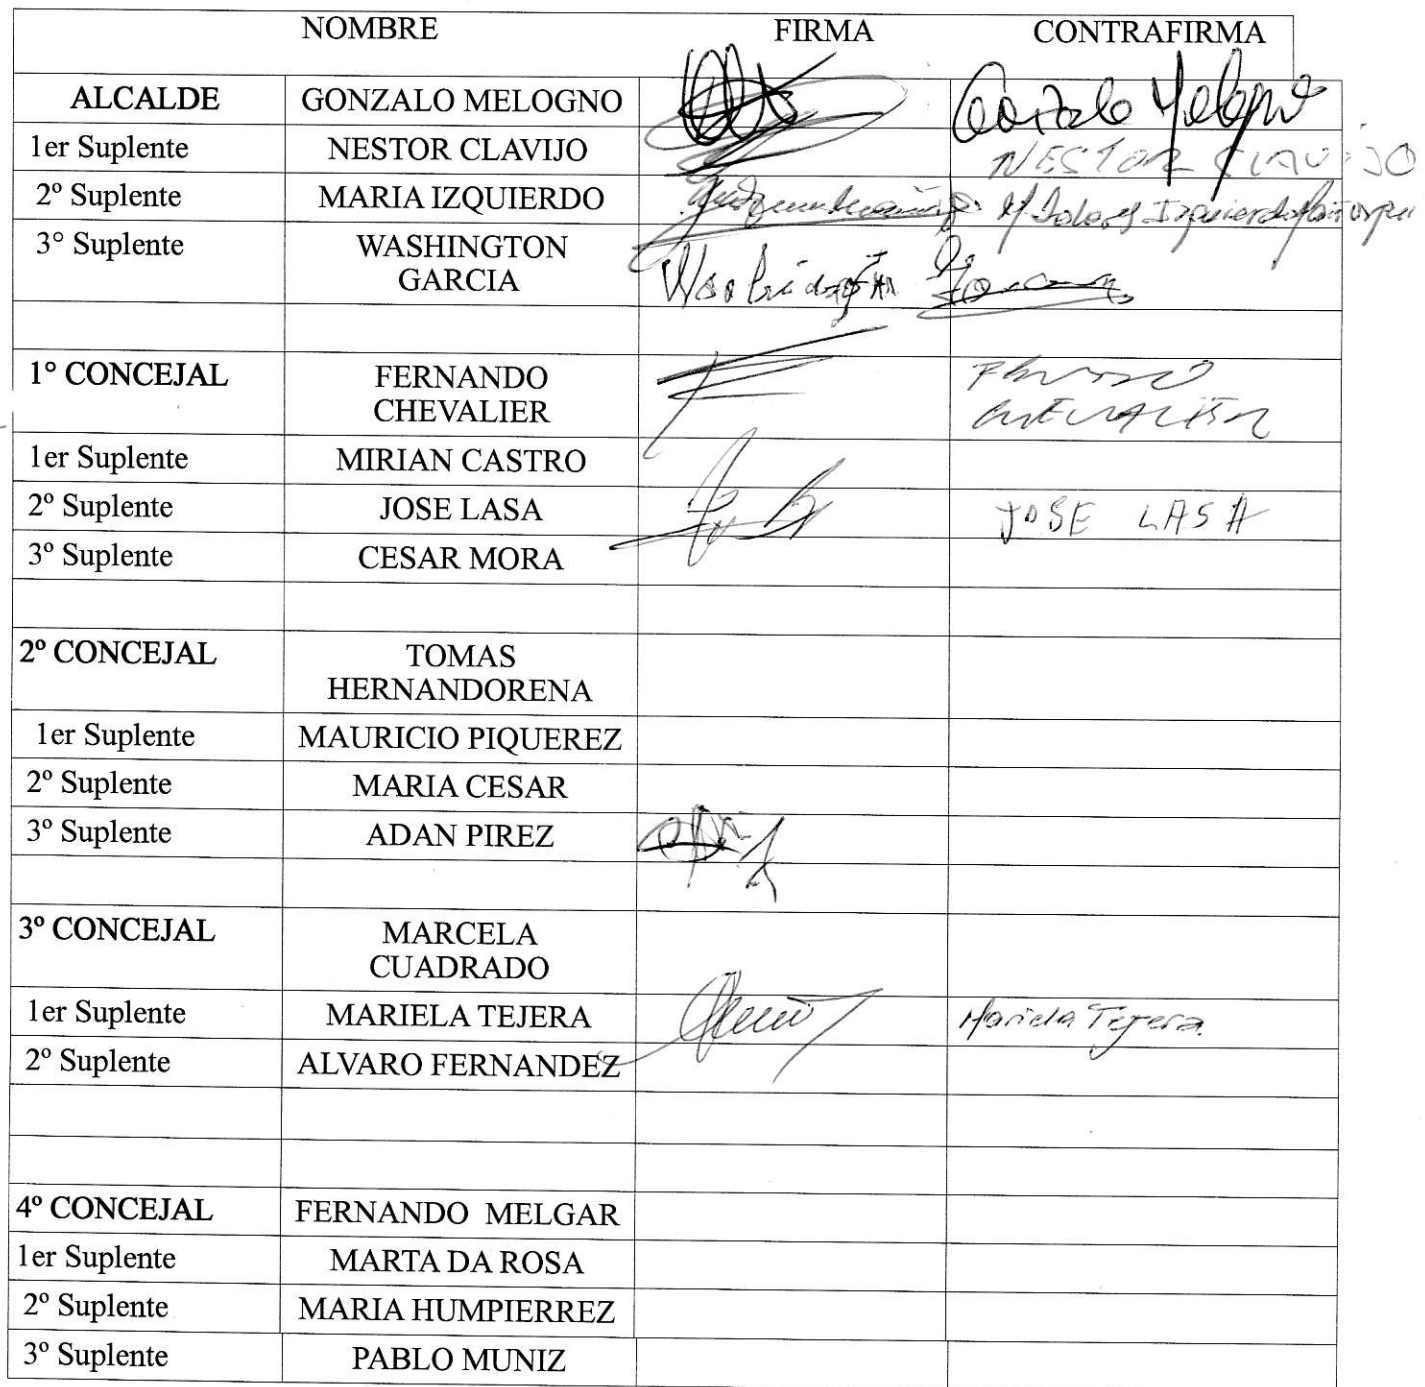 NOMBRE FIRMA CONTRAFIRMA
ALCALDE GONZALO MELOGNO Gonzalo Melogno
1er Suplente NESTOR CLAVIJO NESTOR CLAVIJO
2º Suplente MARIA IZQUIERDO Izquierdo
3° Suplente WASHINGTON
GARCIA Washington
1° CONCEJAL FERNANDO
CHEVALIER CHEVALIER
1er Suplente MIRIAN CASTRO
2º Suplente JOSE LASA JOSE LASA
3º Suplente CESAR MORA
2º CONCEJAL TOMAS
HERNANDORENA
1er Suplente MAURICIO PIQUEREZ
2º Suplente MARIA CESAR
3º Suplente ADAN PIREZ
3º CONCEJAL MARCELA
CUADRADO
1er Suplente MARIELA TEJERA Mariela Tejera
2º Suplente ALVARO FERNANDEZ
4º CONCEJAL FERNANDO MELGAR
1er Suplente MARTA DA ROSA
2º Suplente MARIA HUMPIERREZ
3º Suplente PABLO MUNIZ